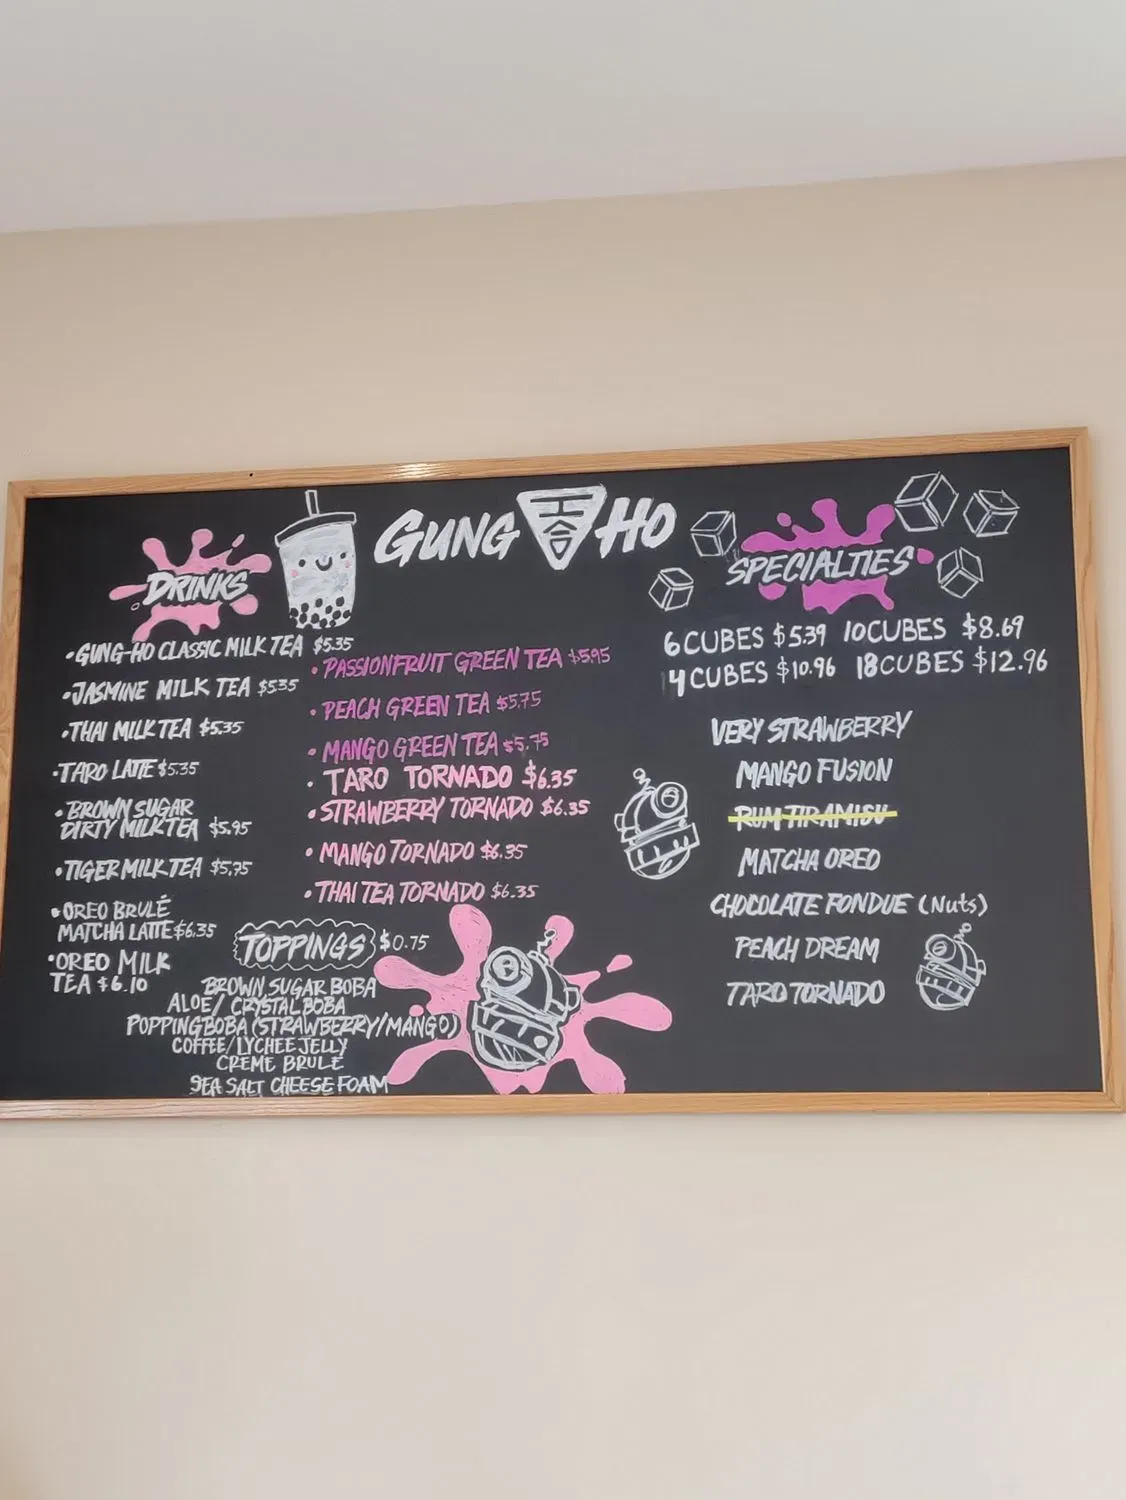 GUNG HO
DRINKS
• GUNG-HO CLASSIC MILK TEA $5.35
• JASMINE MILK TEA $5.35
• THAI MILK TEA $5.35
• TARO LATTE $5.35
• BROWN SUGAR
DIRTY MILK TEA $5.95
• TIGER MILK TEA $5.75
• OREO BRULÉ
MATCHA LATTE $6.35
• OREO MILK
TEA $6.10
• PASSIONFRUIT GREEN TEA $5.95
• PEACH GREEN TEA $5.75
• MANGO GREEN TEA $5.75
• TARO TORNADO $6.35
• STRAWBERRY TORNADO $6.35
• MANGO TORNADO $6.35
• THAI TEA TORNADO $6.35
TOPPINGS $0.75
BROWN SUGAR BOBA
ALOE/ CRYSTAL BOBA
POPPING BOBA (STRAWBERRY/MANGO)
COFFEE/LYCHEE JELLY
CREME BRULÉ
SEA SALT CHEESE FOAM
SPECIALTIES
6 CUBES $5.39 10 CUBES $8.69
4 CUBES $10.96 18 CUBES $12.96
VERY STRAWBERRY
MANGO FUSION
RUM TIRAMISU
MATCHA OREO
CHOCOLATE FONDUE (Nuts)
PEACH DREAM
TARO TORNADO